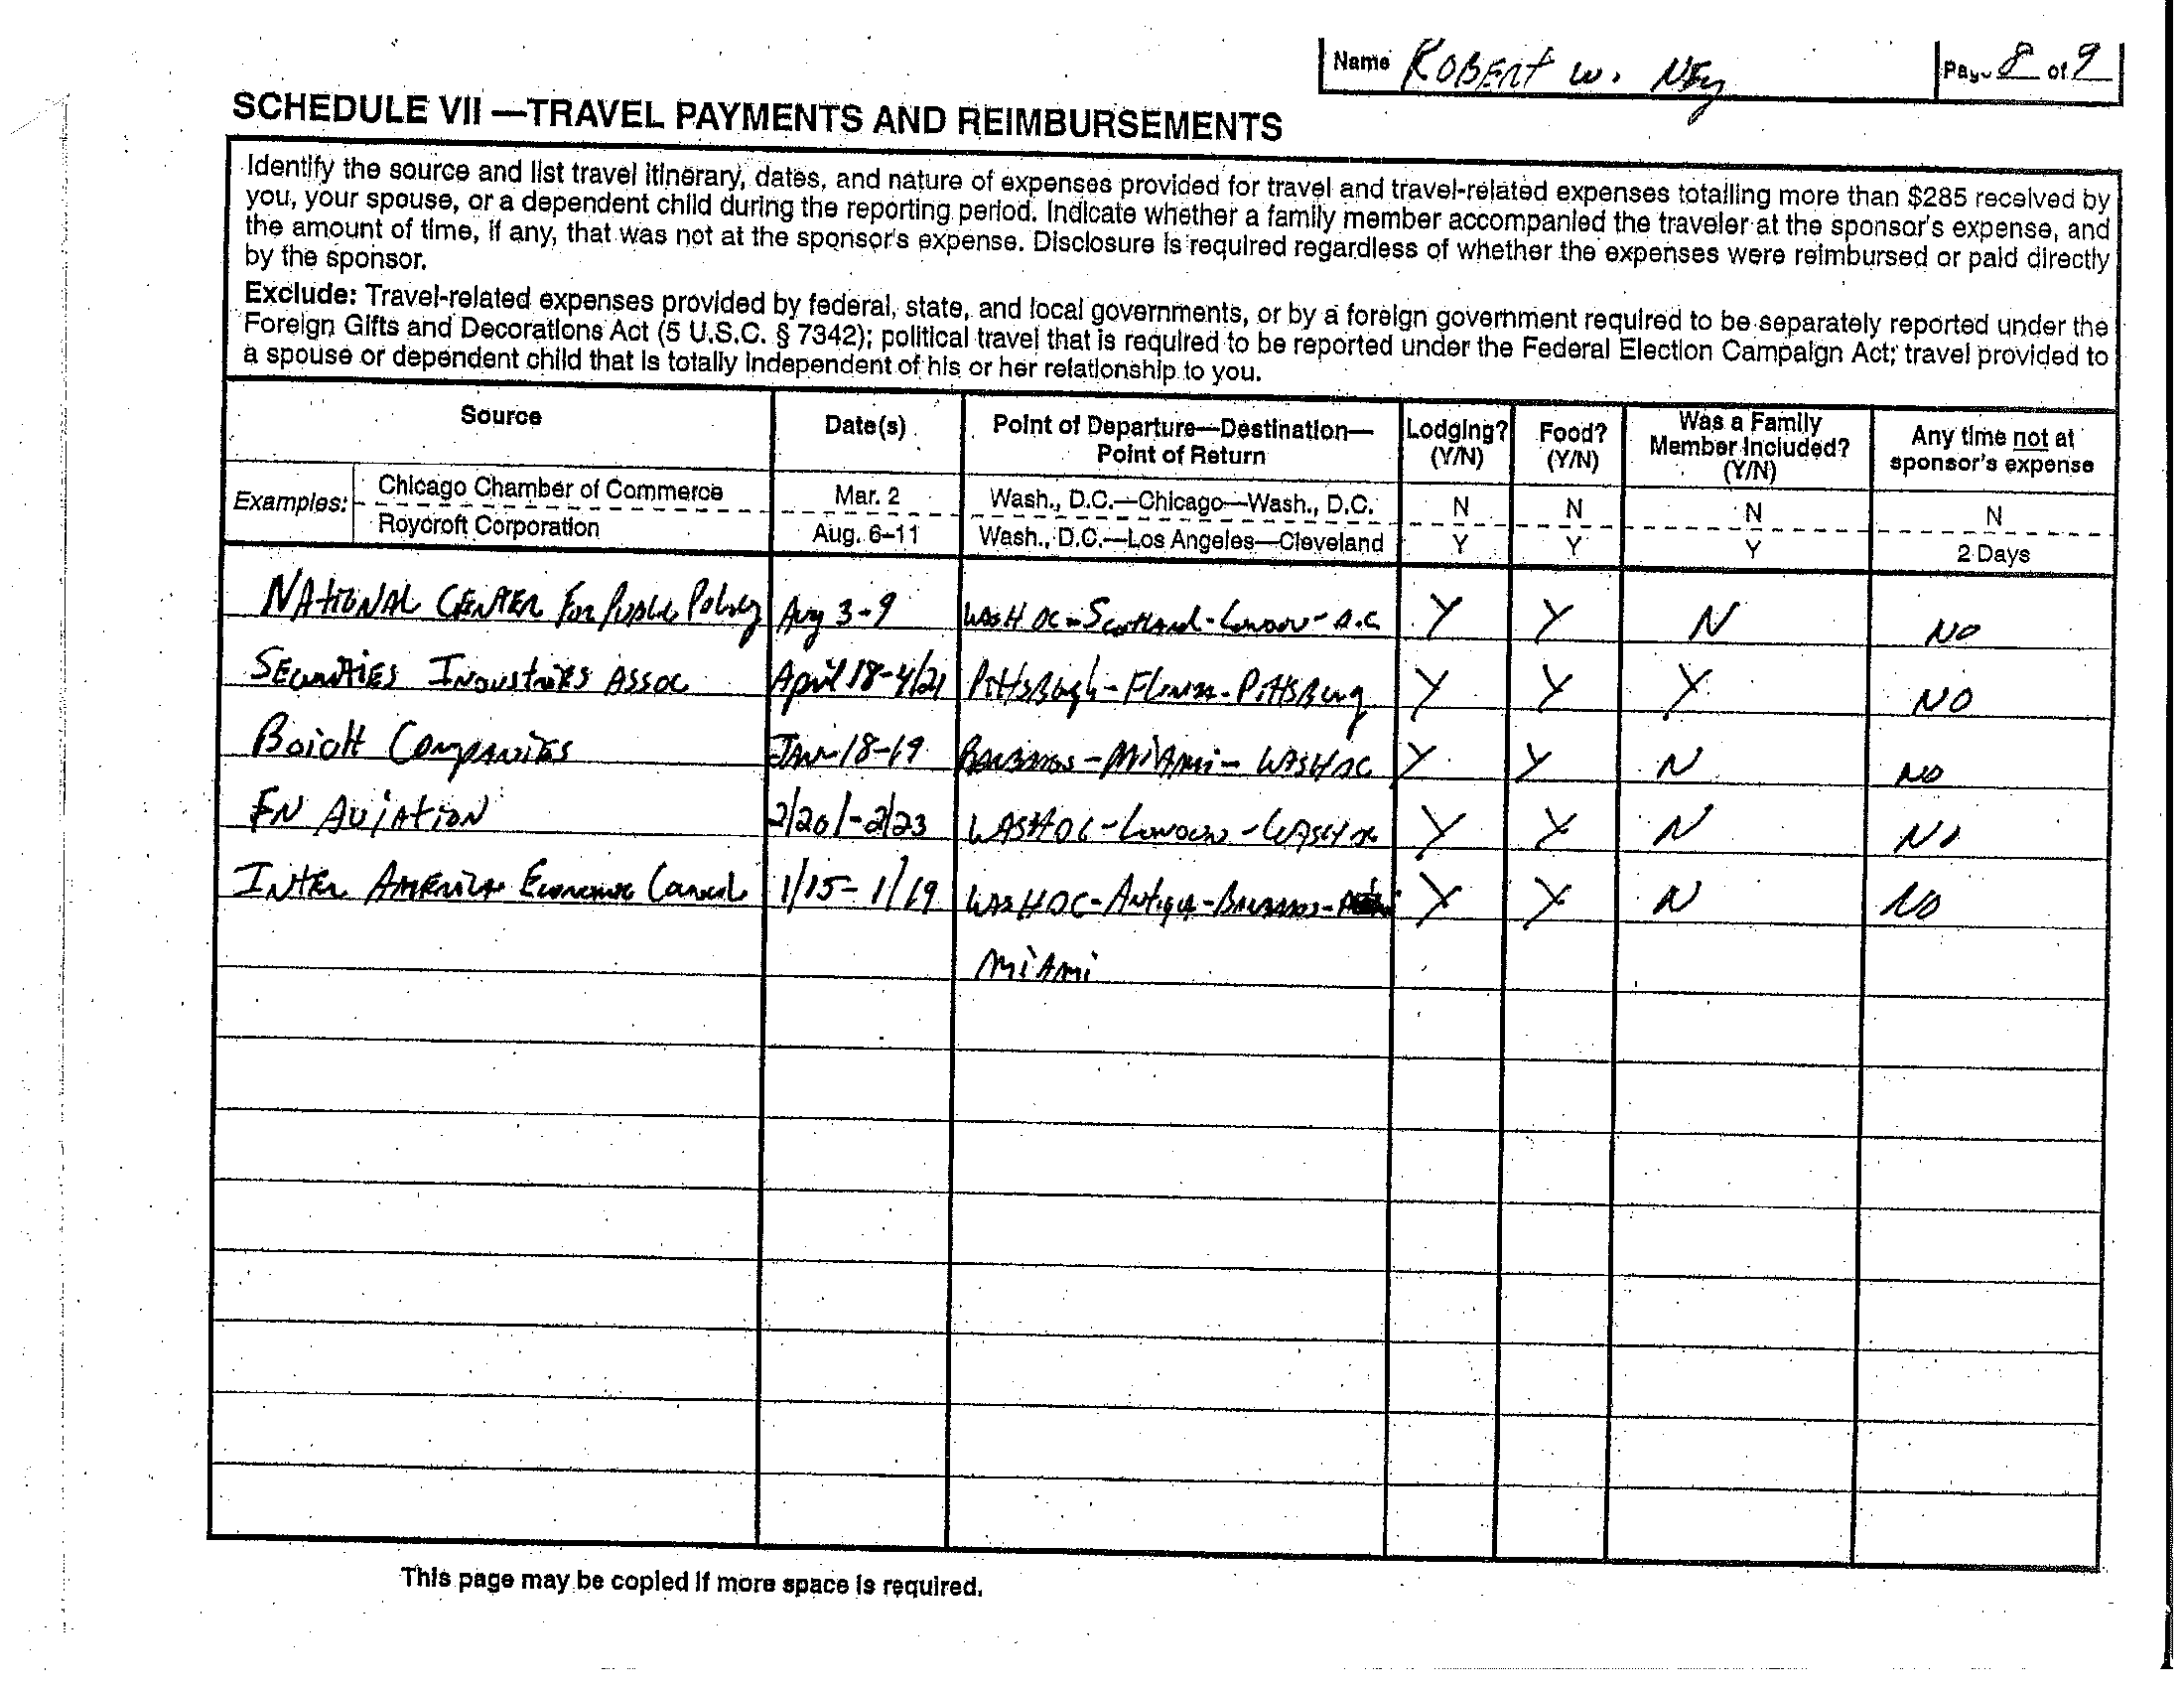 Name ROBERT W. NEY
Page 8 of 9
SCHEDULE VII —TRAVEL PAYMENTS AND REIMBURSEMENTS
Identify the source and list travel itinerary, dates, and nature of expenses provided for travel and travel-related expenses totalling more than $285 received by
you, your spouse, or a dependent child during the reporting period. Indicate whether a family member accompanied the traveler at the sponsor's expense, and
the amount of time, if any, that was not at the sponsor's expense. Disclosure is required regardless of whether the expenses were reimbursed or paid directly
by the sponsor.
Exclude: Travel-related expenses provided by federal, state, and local governments, or by a foreign government required to be separately reported under the
Foreign Gifts and Decorations Act (5 U.S.C. § 7342); political travel that is required to be reported under the Federal Election Campaign Act; travel provided to
a spouse or dependent child that is totally independent of his or her relationship to you.
Source Date(s) Point of Departure—Destination— Lodging? Food? Was a Family Any time not at
Point of Return (Y/N) (Y/N) Member Included? sponsor's expense
(Y/N)
Examples: Chicago Chamber of Commerce Mar. 2 Wash., D.C.—Chicago—Wash., D.C. N N N N
Roycroft Corporation Aug. 6–11 Wash., D.C.—Los Angeles—Cleveland Y Y Y 2 Days
NATIONAL CENTER For Public Policy Aug 3-9 WASH DC - Scotland - London - D.C. Y Y N NO
SECURITIES INDUSTRIES ASSOC April 18-4/21 PittsBurgh - - PittsBurg Y Y Y NO
Companies Jan 18-19 BAHAMAS - MiAmi - WASH DC Y Y N NO
FN AviAtiON 2/20/-2/23 WASH DC - London - WASH DC Y Y N NO
INTER AMERICAN Economic Council 1/15-1/19 WASH DC - Antigua - BAHAMAS - Y Y N NO
MiAmi
This page may be copied if more space is required.